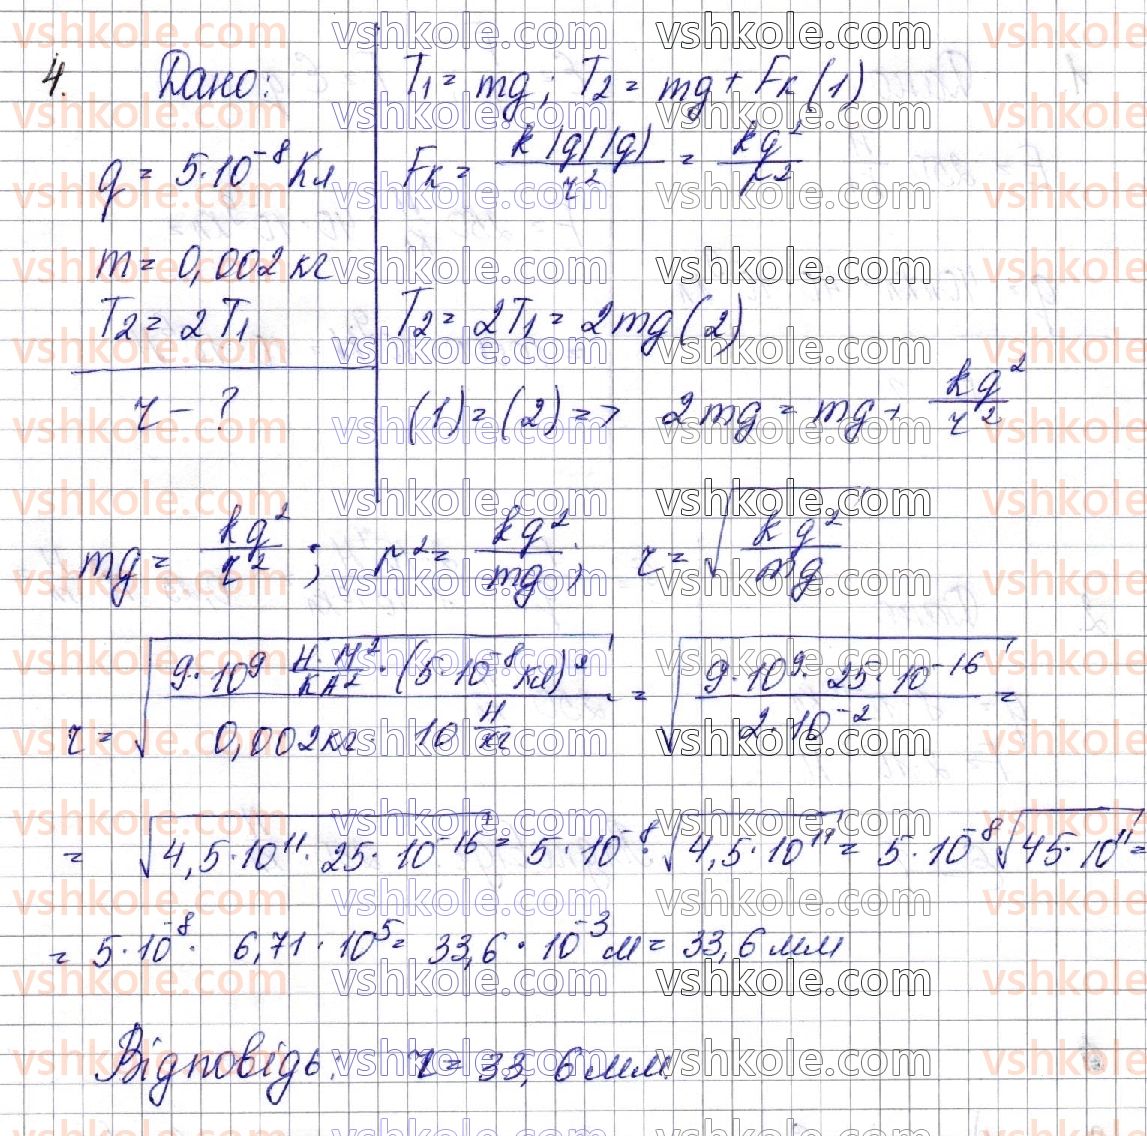 4. Дано:
q = 5·10⁻⁸ Кл
m = 0,002 кг
T₂ = 2T₁
r - ?
T₁ = mg; T₂ = mg + Fк (1)
Fк = k|q||q|/r² = kq²/r²
T₂ = 2T₁ = 2mg (2)
(1) = (2) => 2mg = mg + kq²/r²
mg = kq²/r²; r² = kq²/mg; r = √(kq²/mg)
r = √(9·10⁹ Н·м²/Кл²·(5·10⁻⁸ Кл)²/0,002 кг·10 Н/кг) = √(9·10⁹·25·10⁻¹⁶/2·10⁻²) =
= √(4,5·10¹¹·25·10⁻¹⁶) = 5·10⁻⁸·√(4,5·10¹¹) = 5·10⁻⁸√(45·10¹¹) =
= 5·10⁻⁸· 6,71·10⁵ = 33,6·10⁻³ м = 33,6 мм
Відповідь: r = 33,6 мм.
vshkole.com